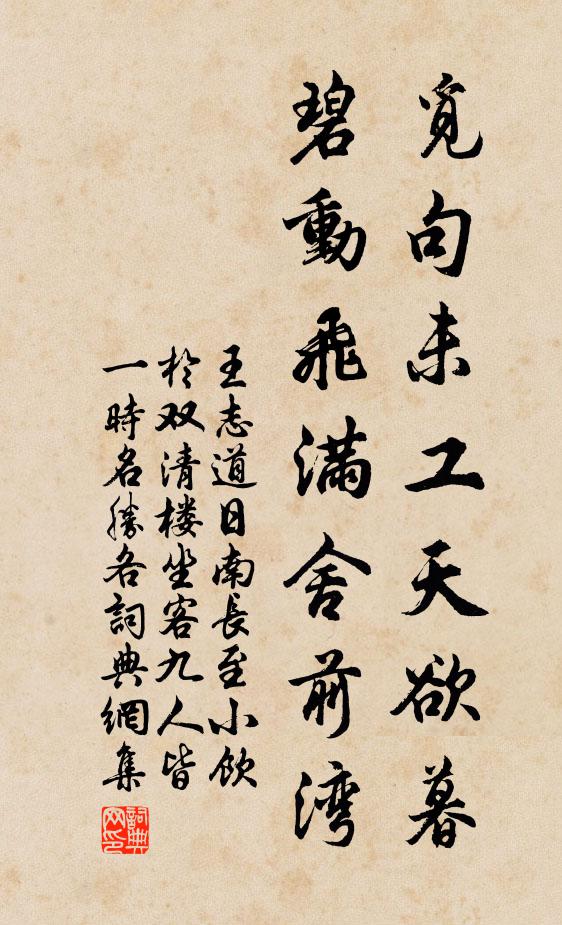 覓句未工天欲暮
碧動飛滿舍前灣
王志道日南長至小飲
於双清楼坐客九人皆
一時名勝各詞典網集
詞典
网印